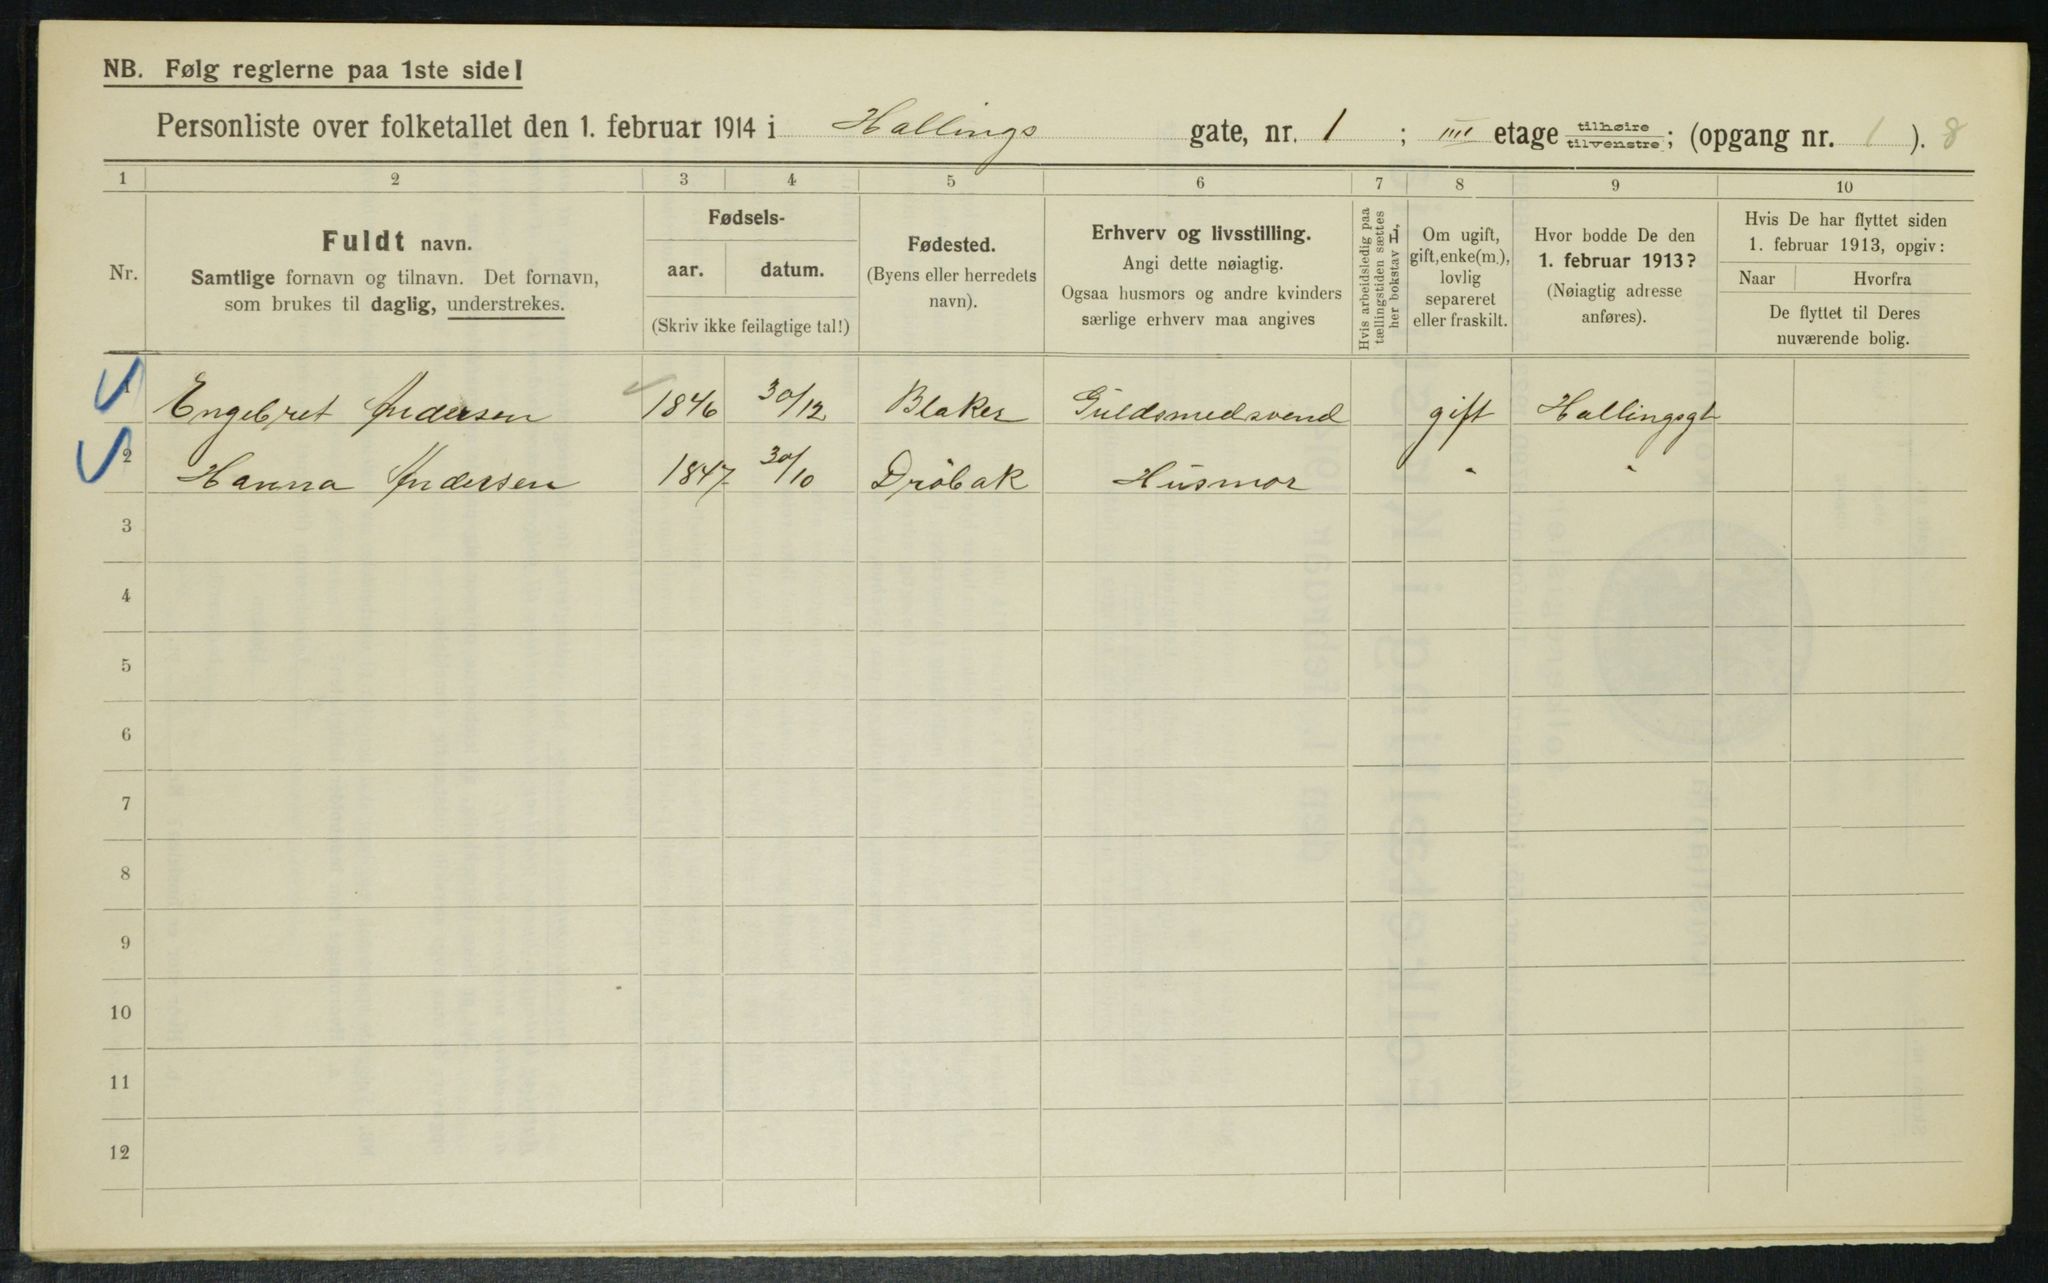 NB. Følg reglerne paa 1ste side!
Personliste over folketallet den 1. februar 1914 i Hallings gate, nr. 1 ; III etage tilhøire tilvenstre; (opgang nr. 1 ). 8
1 2 3 4 5 6 7 8 9 10
Nr.
Fuldt navn.
Samtlige fornavn og tilnavn. Det fornavn,
som brukes til daglig, understrekes.
Fødsels-
aar. datum.
(Skriv ikke feilagtige tal!)
Fødested.
(Byens eller herredets
navn).
Erhverv og livsstilling.
Angi dette nøiagtig.
Ogsaa husmors og andre kvinders
særlige erhverv maa angives
Hvis arbeidsledig paa
tællingstiden sættes
her bokstav L.
Om ugift,
gift, enke(m.),
lovlig
separeret
eller fraskilt.
Hvor bodde De den
1. februar 1913?
(Nøiagtig adresse
anføres).
Hvis De har flyttet siden
1. februar 1913, opgiv:
Naar Hvorfra
De flyttet til Deres
nuværende bolig.
1 Engebret Andersen 1846 30/12 Blaker Guldsmedsvend gift Hallingsgt
2 Hanna Andersen 1847 30/10 Drøbak Husmor " "
3
4
5
6
7
8
9
10
11
12